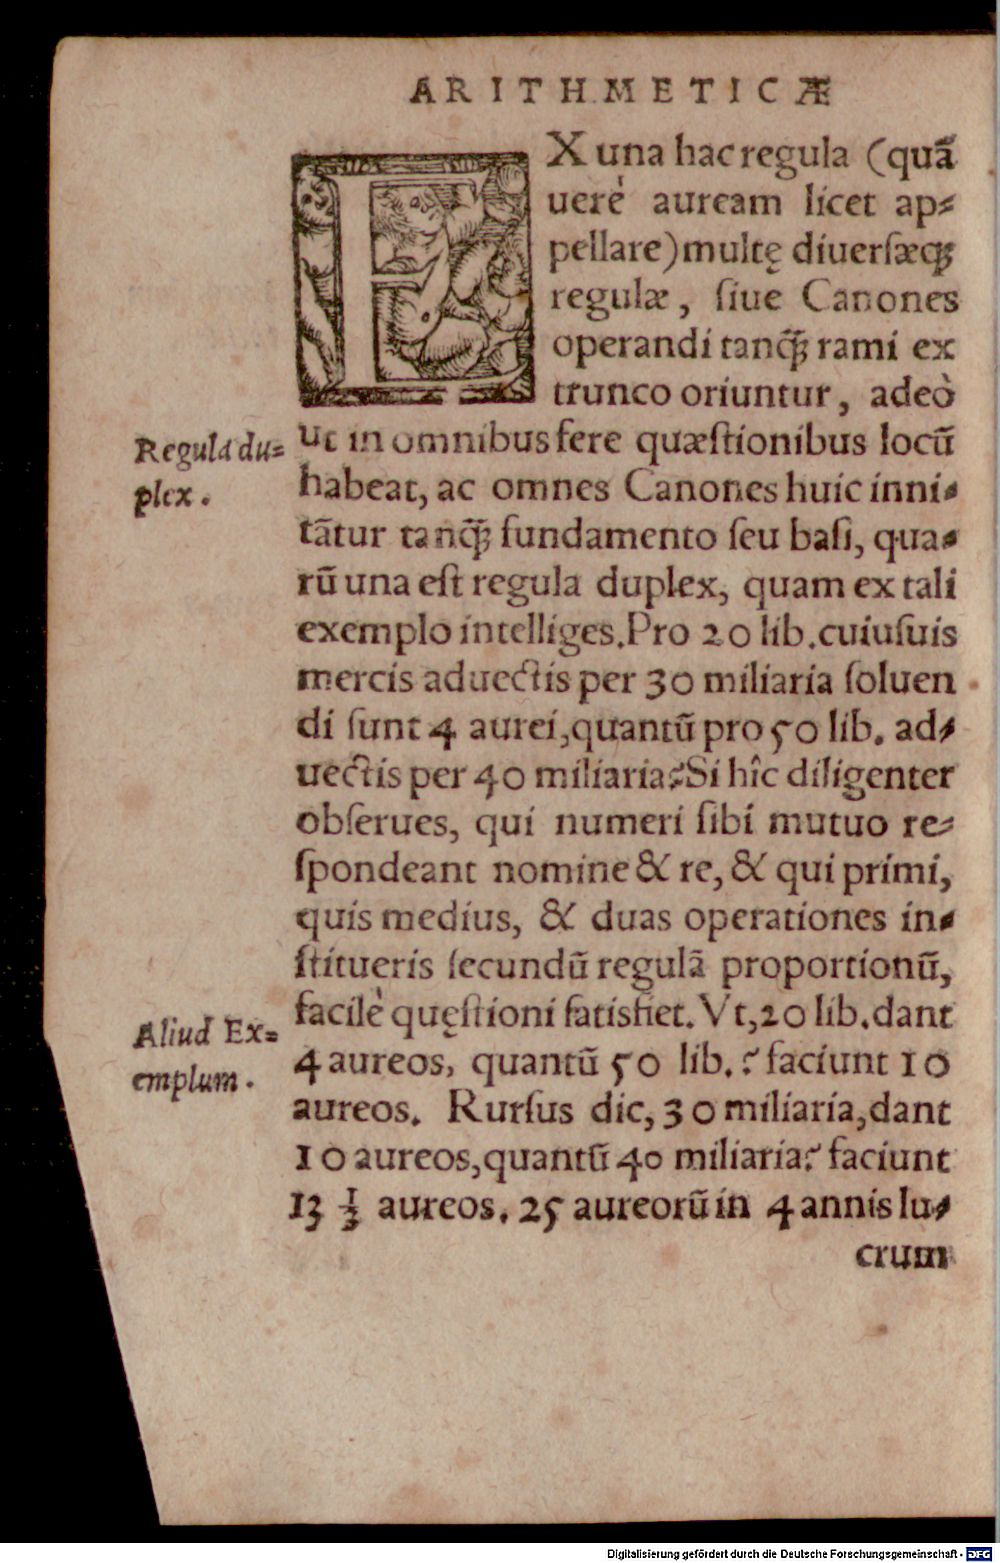 ARITHMETICÆ
EX una hac regula (quã
uerè auream licet ap⸗
pellare) multę diuersæq́;
regulæ, siue Canones
operandi tanq̃; rami ex
trunco oriuntur, adeò
Regula du⸗
plex.
ut in omnibus fere quæstionibus locũ
habeat, ac omnes Canones huic inni⸗
tãtur tanq̃; fundamento seu basi, qua⸗
rũ una est regula duplex, quam ex tali
exemplo intelliges. Pro 20 lib. cuiusuis
mercis aduectis per 30 miliaria soluen
di sunt 4 aurei, quantũ pro 50 lib. ad⸗
uectis per 40 miliaria? Si hîc diligenter
obserues, qui numeri sibi mutuo re⸗
spondeant nomine & re, & qui primi,
quis medius, & duas operationes in⸗
stitueris secundũ regulã proportionũ,
facilè quęstioni satisfiet. Vt, 20 lib. dant
Aliud Ex⸗
emplum.
4 aureos, quantũ 50 lib.? faciunt 10
aureos. Rursus dic, 30 miliaria, dant
10 aureos, quantũ 40 miliaria? faciunt
13 1/3 aureos. 25 aureorũ in 4 annis lu⸗
crum
Digitalisierung gefördert durch die Deutsche Forschungsgemeinschaft - DFG